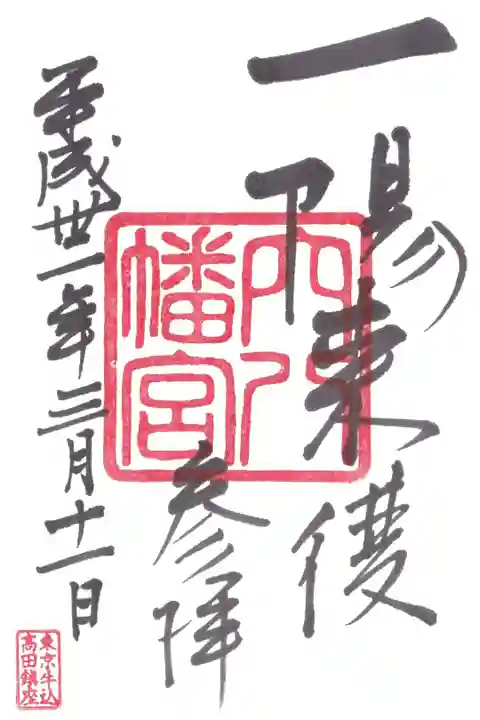 一陽来復
穴八
幡宮
参拝
平成丗一年三月十一日
東京牛込
高田鎮座